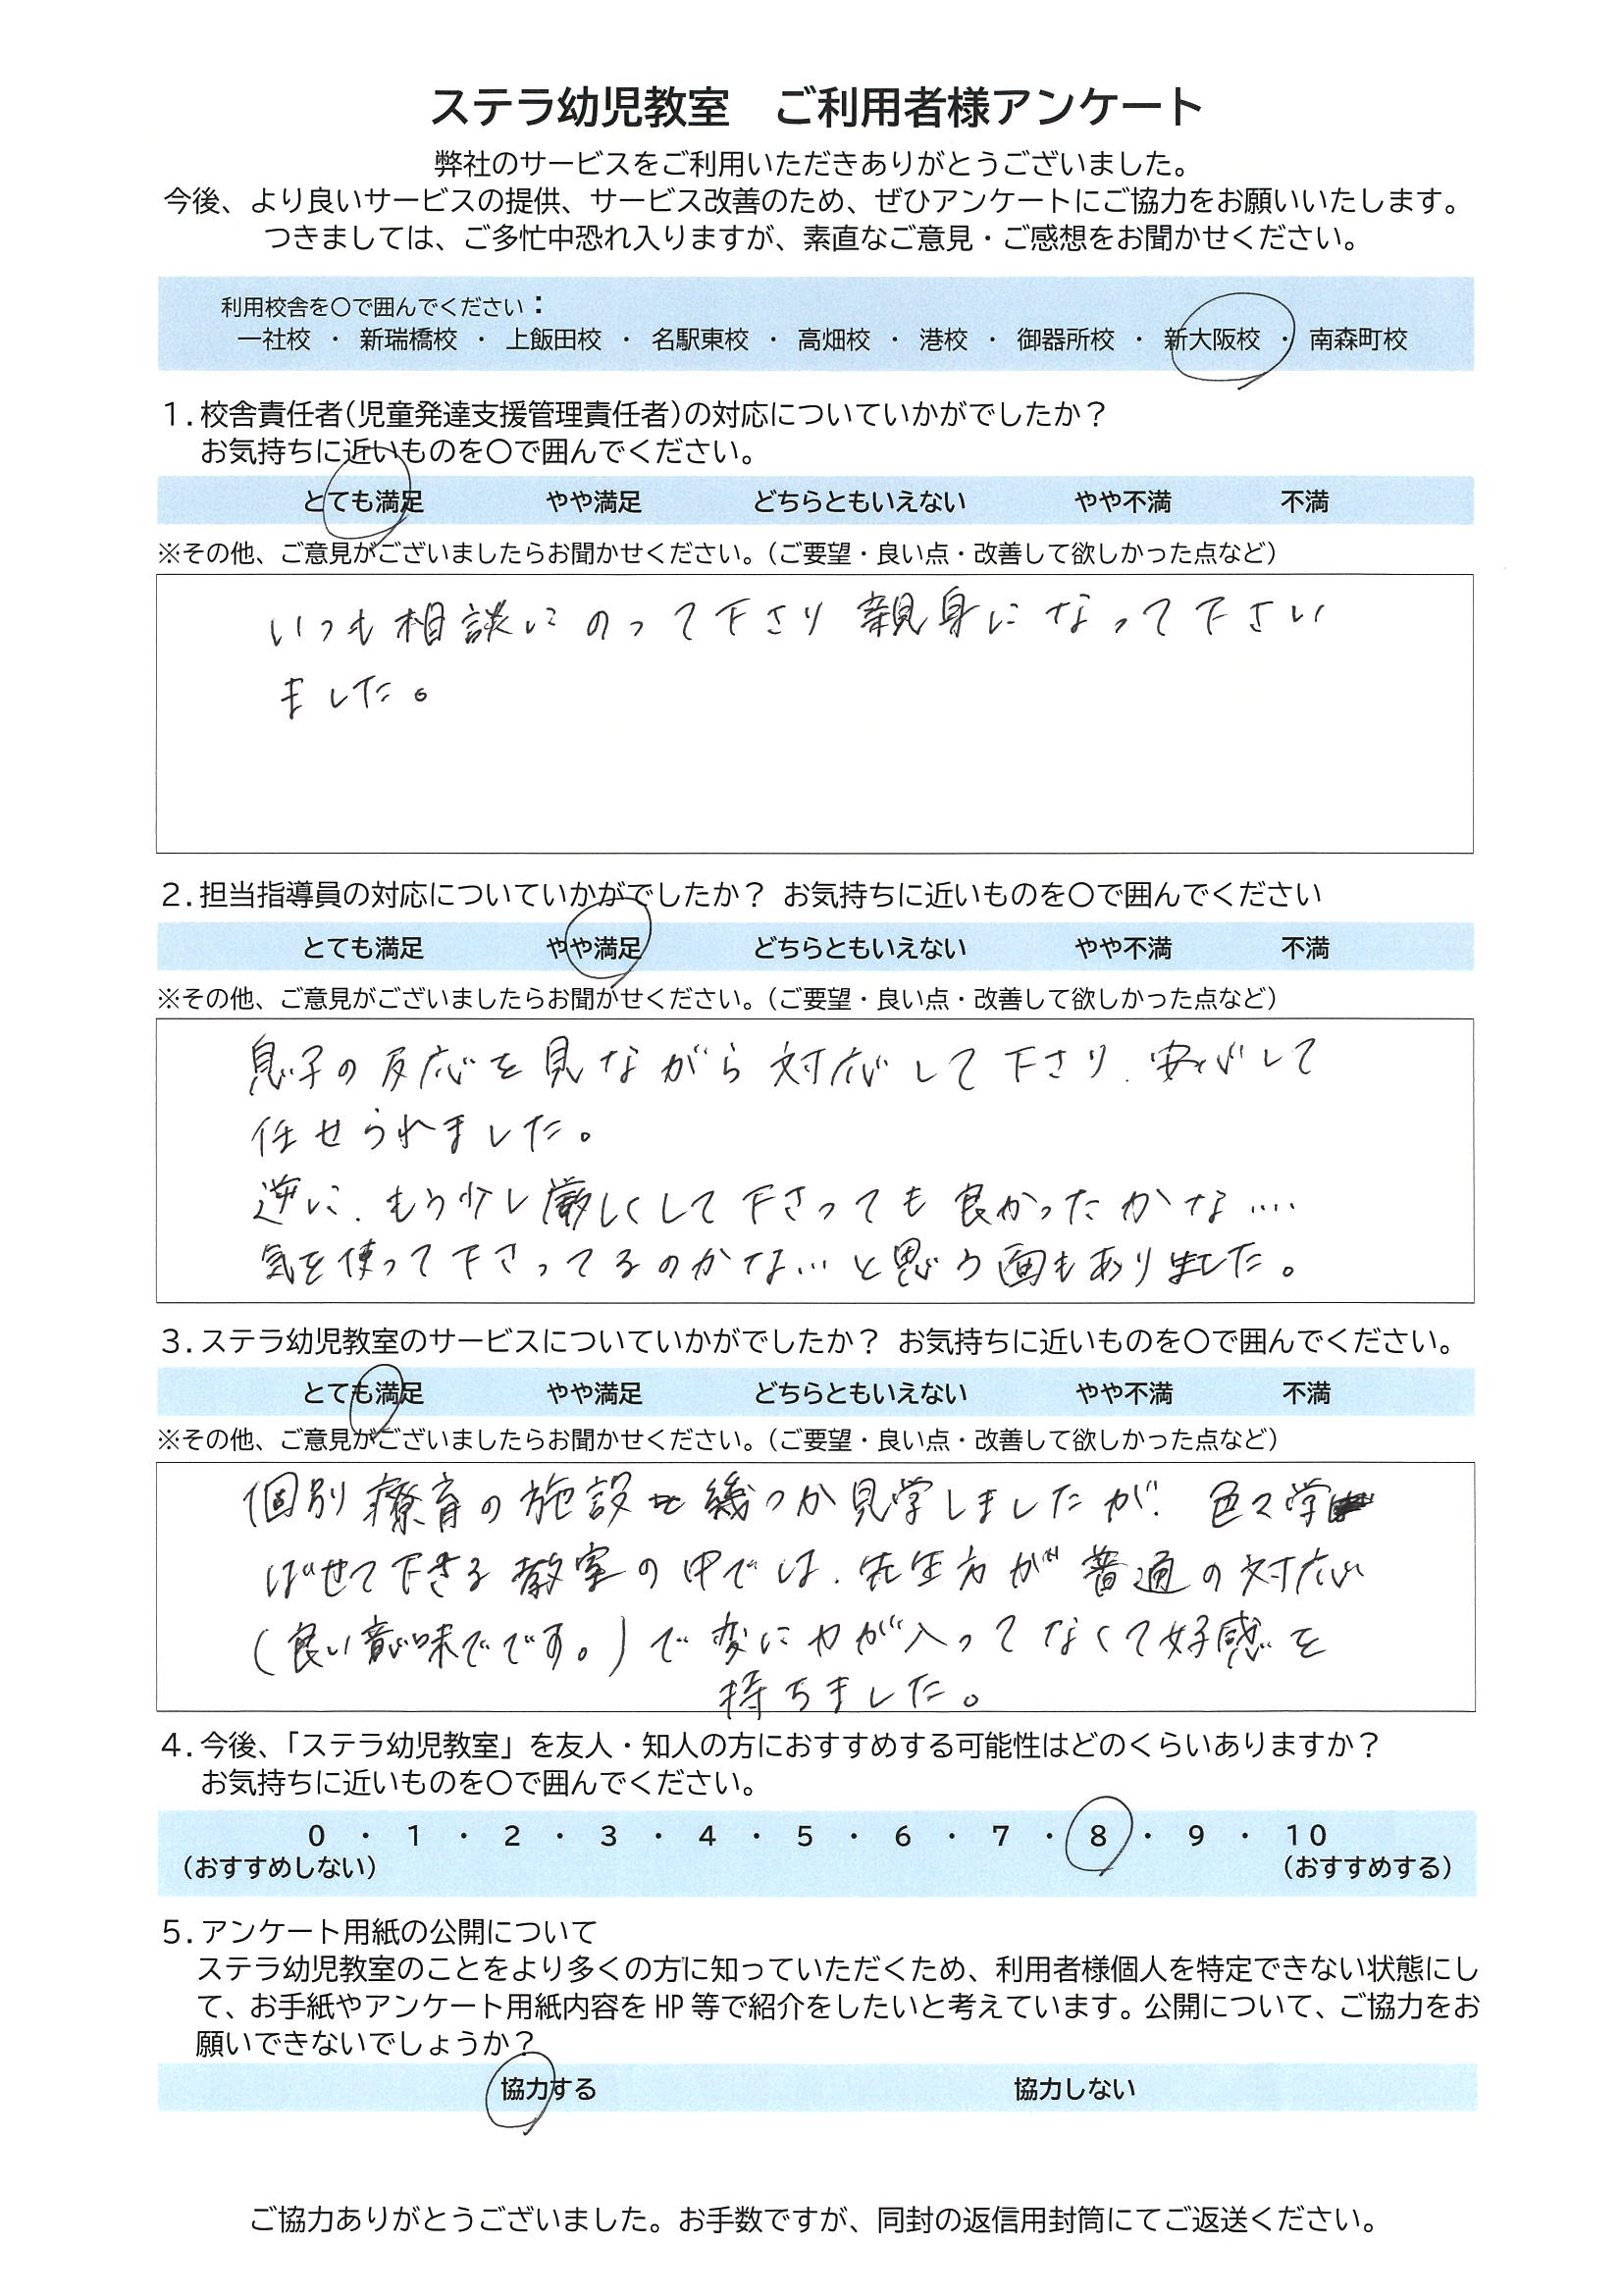 ステラ幼児教室　ご利用者様アンケート
弊社のサービスをご利用いただきありがとうございました。
今後、より良いサービスの提供、サービス改善のため、ぜひアンケートにご協力をお願いいたします。
つきましては、ご多忙中恐れ入りますが、素直なご意見・ご感想をお聞かせください。
利用校舎を〇で囲んでください：
一社校 ・ 新瑞橋校 ・ 上飯田校 ・ 名駅東校 ・ 高畑校 ・ 港校 ・ 御器所校 ・ 新大阪校 ・ 南森町校
1. 校舎責任者(児童発達支援管理責任者)の対応についていかがでしたか？
お気持ちに近いものを〇で囲んでください。
とても満足　やや満足　どちらともいえない　やや不満　不満
※その他、ご意見がございましたらお聞かせください。（ご要望・良い点・改善して欲しかった点など）
いつも相談にのって下さり親身になって下さい
ました。
2. 担当指導員の対応についていかがでしたか？ お気持ちに近いものを〇で囲んでください
とても満足　やや満足　どちらともいえない　やや不満　不満
※その他、ご意見がございましたらお聞かせください。（ご要望・良い点・改善して欲しかった点など）
息子の反応を見ながら対応して下さり、安心して
任せられました。
逆に、もう少し厳しくして下さっても良かったかな….
気を使って下さってるのかな…と思う面もありました。
3. ステラ幼児教室のサービスについていかがでしたか？ お気持ちに近いものを〇で囲んでください。
とても満足　やや満足　どちらともいえない　やや不満　不満
※その他、ご意見がございましたらお聞かせください。（ご要望・良い点・改善して欲しかった点など）
個別療育の施設を幾つか見学しましたが、色々学
ばせて下さる教室の中では、先生方が普通の対応
(良い意味でです。)で変に力が入ってなくて好感を
持ちました。
4. 今後、「ステラ幼児教室」を友人・知人の方におすすめする可能性はどのくらいありますか？
お気持ちに近いものを〇で囲んでください。
0 ・ 1 ・ 2 ・ 3 ・ 4 ・ 5 ・ 6 ・ 7 ・ 8 ・ 9 ・ 10
（おすすめしない）　（おすすめする）
5. アンケート用紙の公開について
ステラ幼児教室のことをより多くの方に知っていただくため、利用者様個人を特定できない状態にし
て、お手紙やアンケート用紙内容を HP 等で紹介をしたいと考えています。公開について、ご協力をお
願いできないでしょうか？
協力する　協力しない
ご協力ありがとうございました。お手数ですが、同封の返信用封筒にてご返送ください。